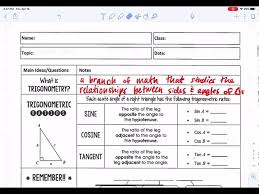 Name:
Class:
Topic:
Date:
Main Ideas/Questions
Notes
What is
TRIGONOMETRY?
a branch of math that studies the
relationships between sides & angles of Δs
TRIGONOMETRIC
RATIOS
Each acute angle of a right triangle has the following trigonometric ratios:
SINE
The ratio of the leg
opposite the angle to
the hypotenuse.
• Sin A =
• Sin B =
COSINE
The ratio of the leg
adjacent to the angle
to the hypotenuse.
• Cos A =
• Cos B =
TANGENT
The ratio of the leg
opposite the angle to the
leg adjacent to the angle.
• Tan A =
• Tan B =
REMEMBER!